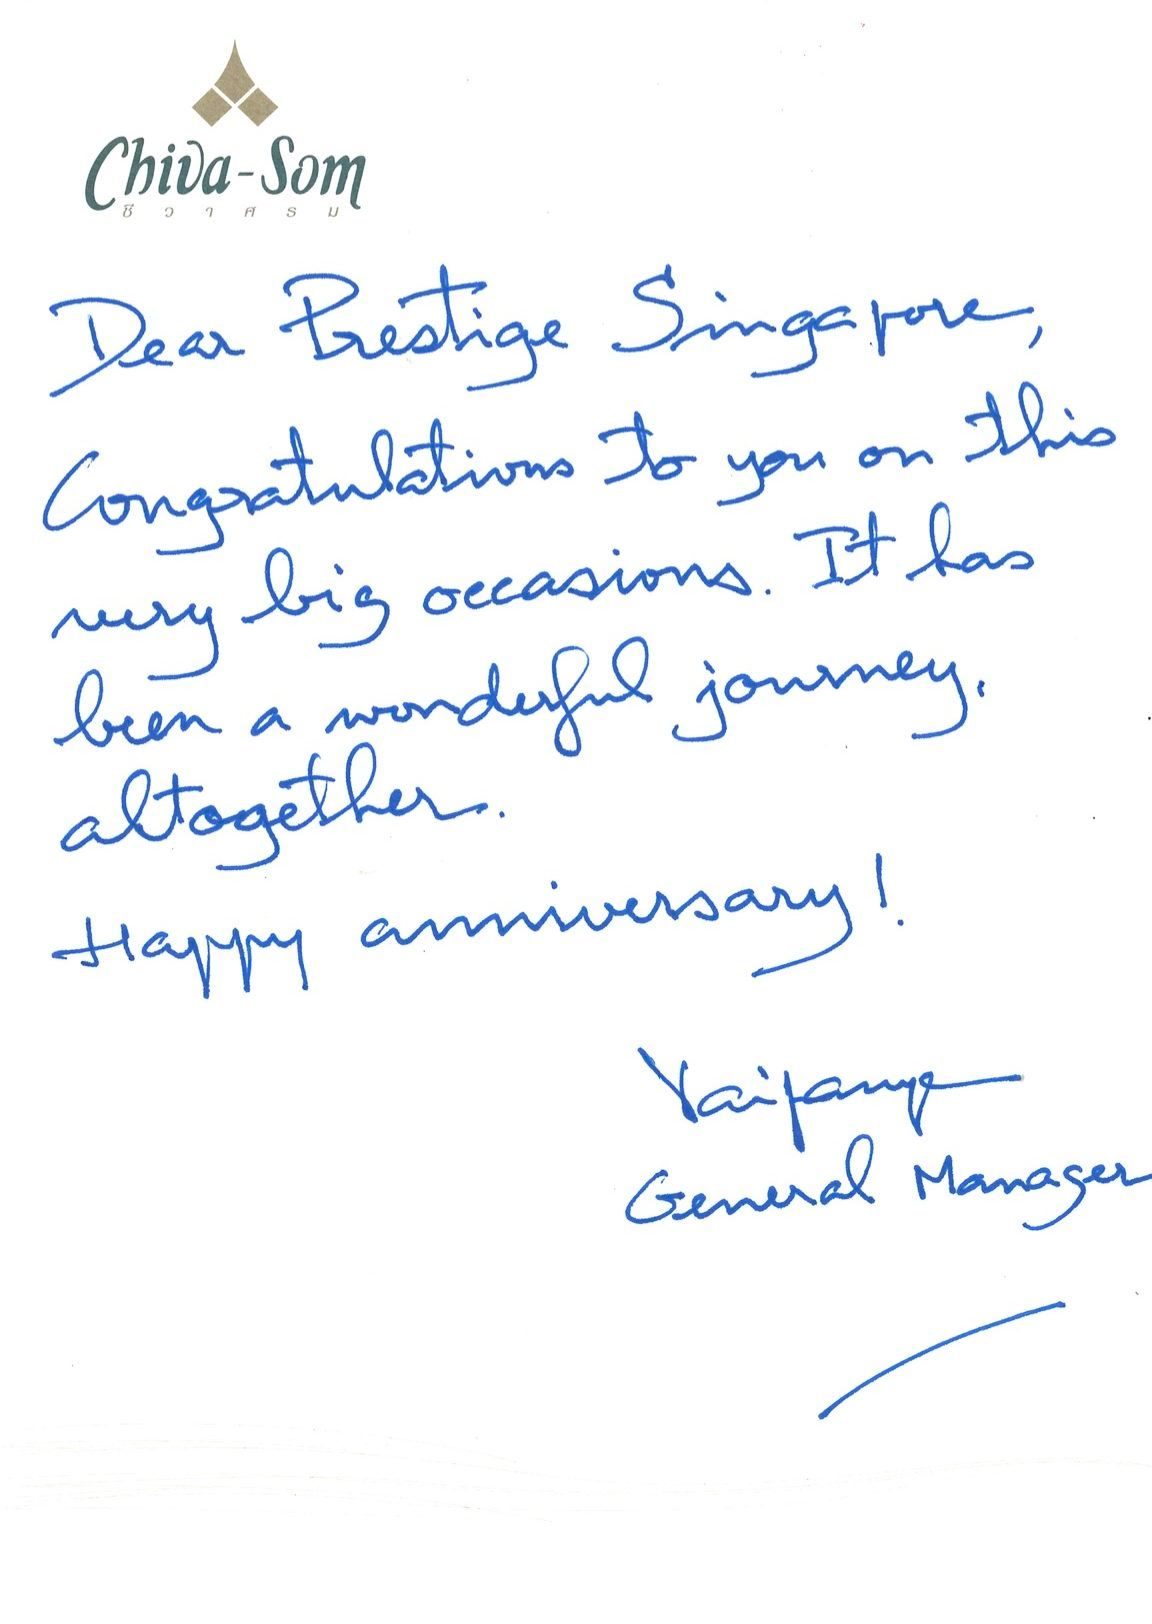 Chiva-Som
ชีวาศรม
Dear Prestige Singapore,
Congratulations to you on this
very big occasions. It has
been a wonderful journey.
altogether.
Happy anniversary!
General Manager